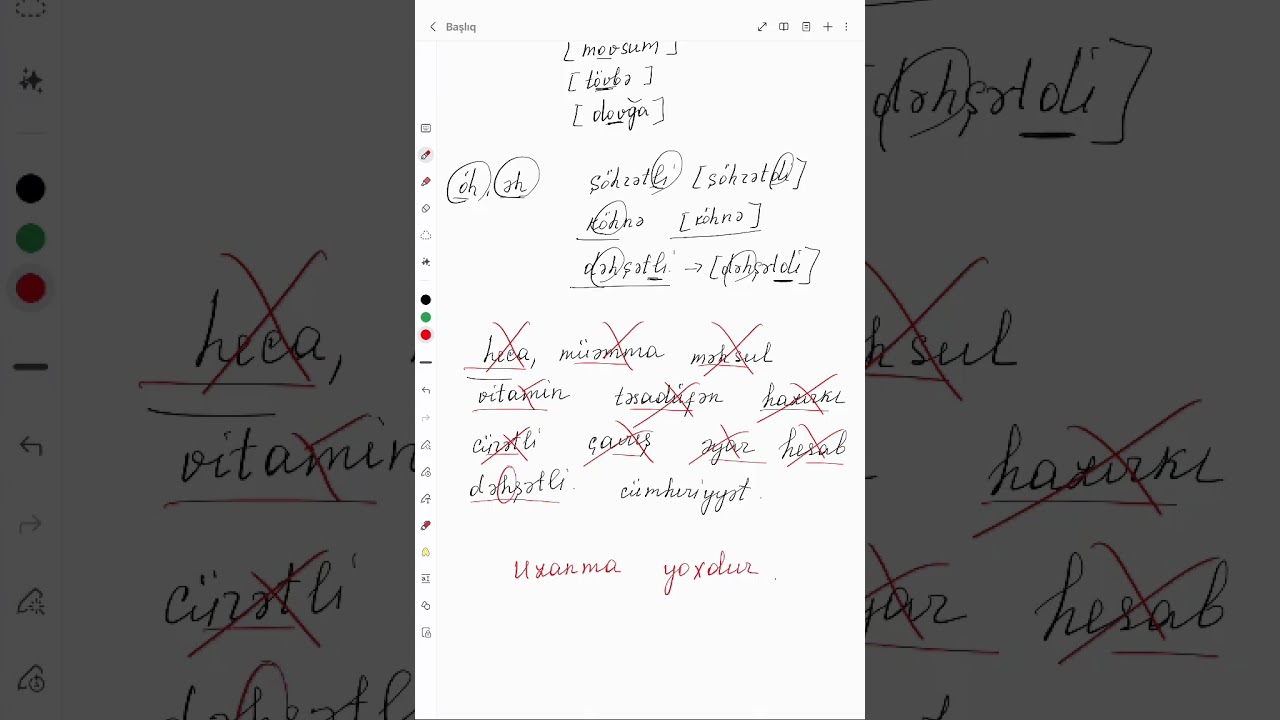 Başlıq
[movsum]
[tövbə]
[dovğa]
öh, əh şöhrətli [şöhrətdi]
köhnə [köhnə]
dəhşətli. → [dəhşətdi]
heca, müəmma məhsul
vitamin təsadüfən hazırkı
cürətli çavuş əyar hesab
dəhşətli. cümhuriyyət.
uzanma yoxdur.